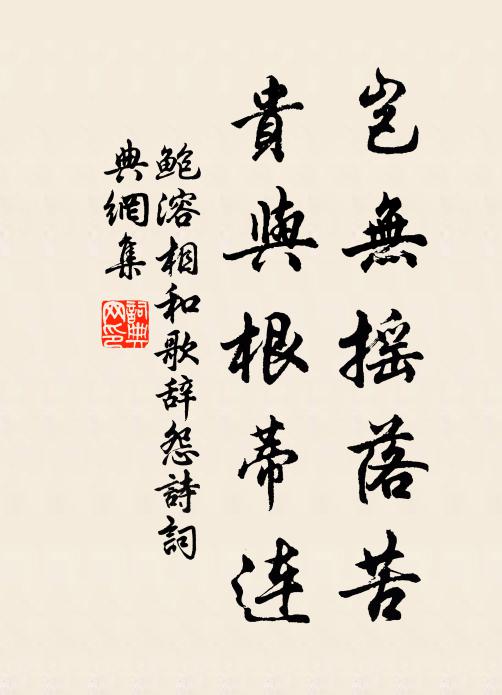 岂無摇落苦
貴與根蒂連
鮑溶相和歌辞怨詩詞
典網集
詞典网印